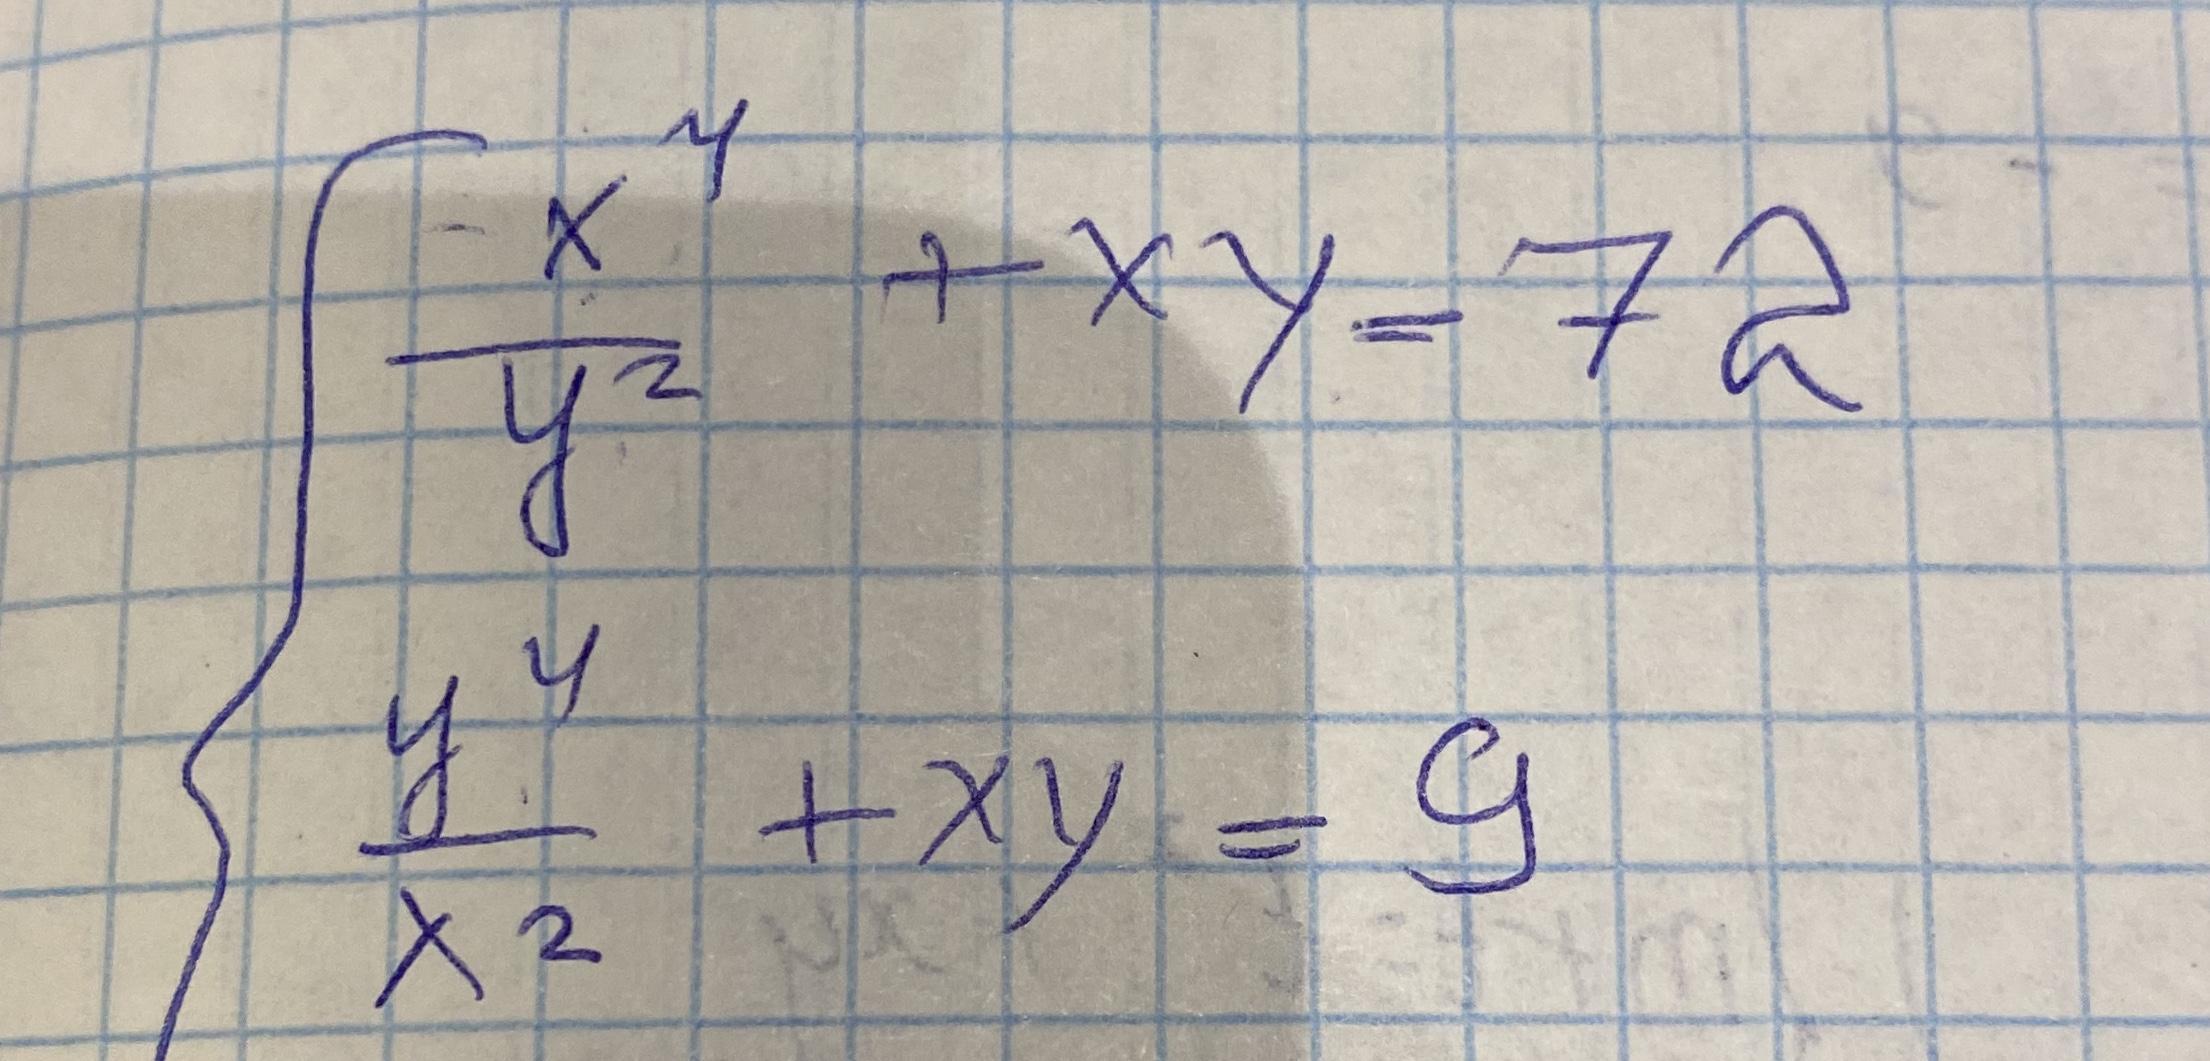 x⁴/y² + xy = 72
y⁴/x² + xy = 9